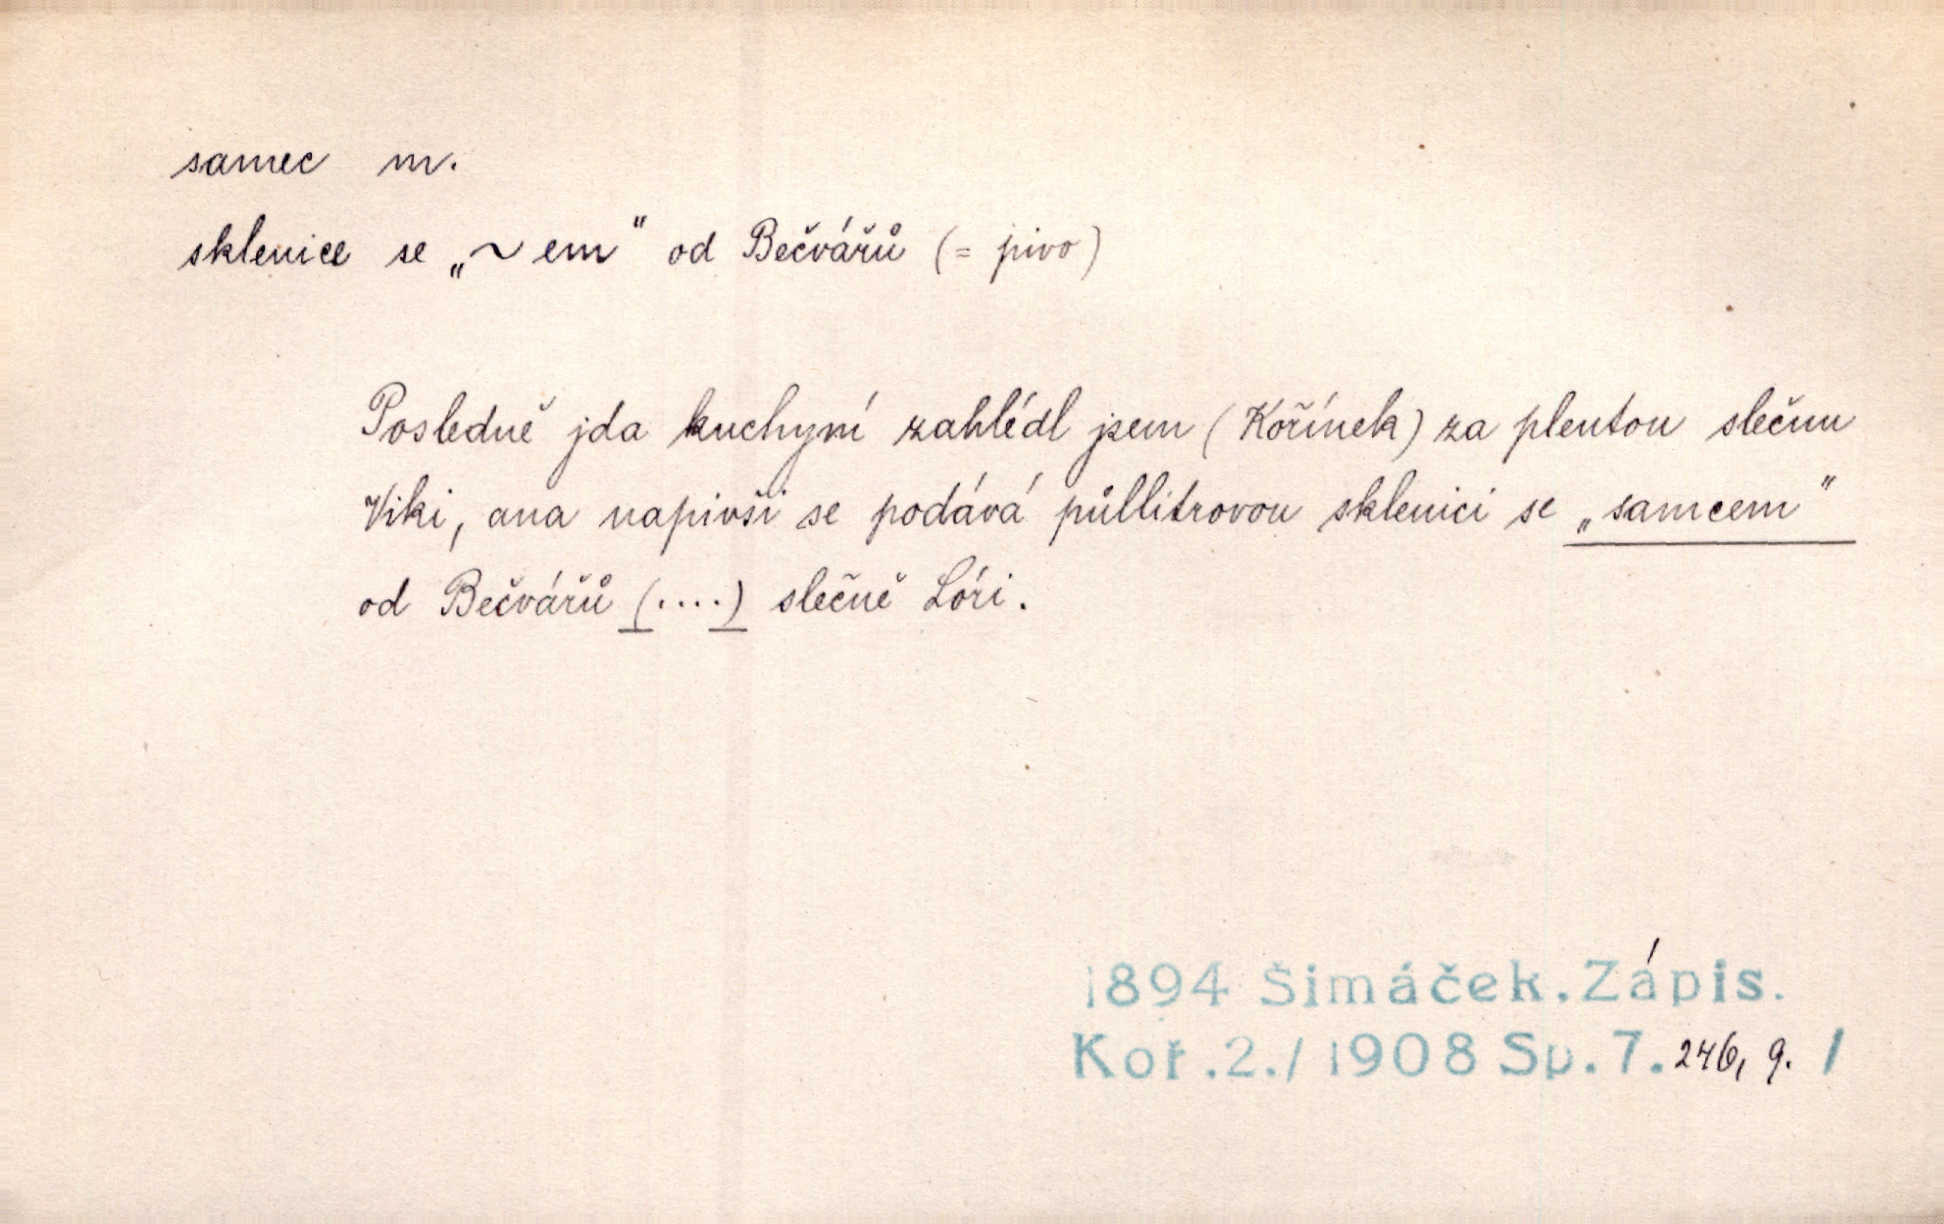 samec m.
sklenice se „~em" od Bečvářů (= pivo)
Posledně jda kuchyní zahlédl jsem (Kořínek) za plentou slečnu
Viki, ana napivši se podává půllitrovou sklenici se „samcem"
od Bečvářů (....) slečně Lóri.
1894 Šimáček.Zápis.
Koř.2./1908 Sp.7.246, 9. /